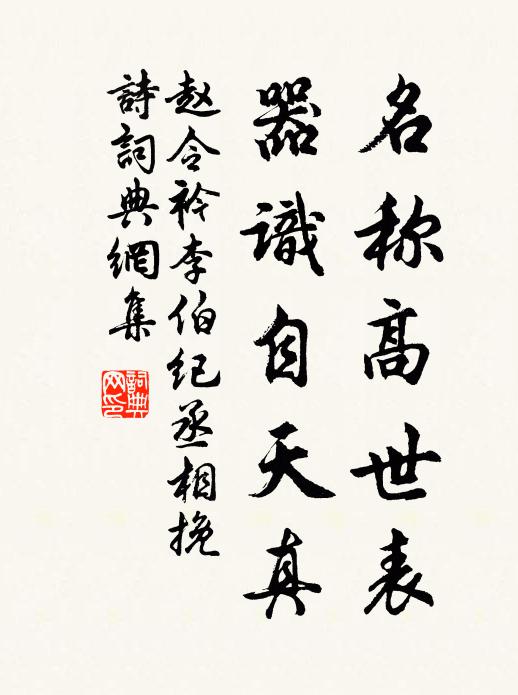 名称高世表
器識自天真
赵令衿李伯纪丞相挽
詩詞典網集
詞典
网印